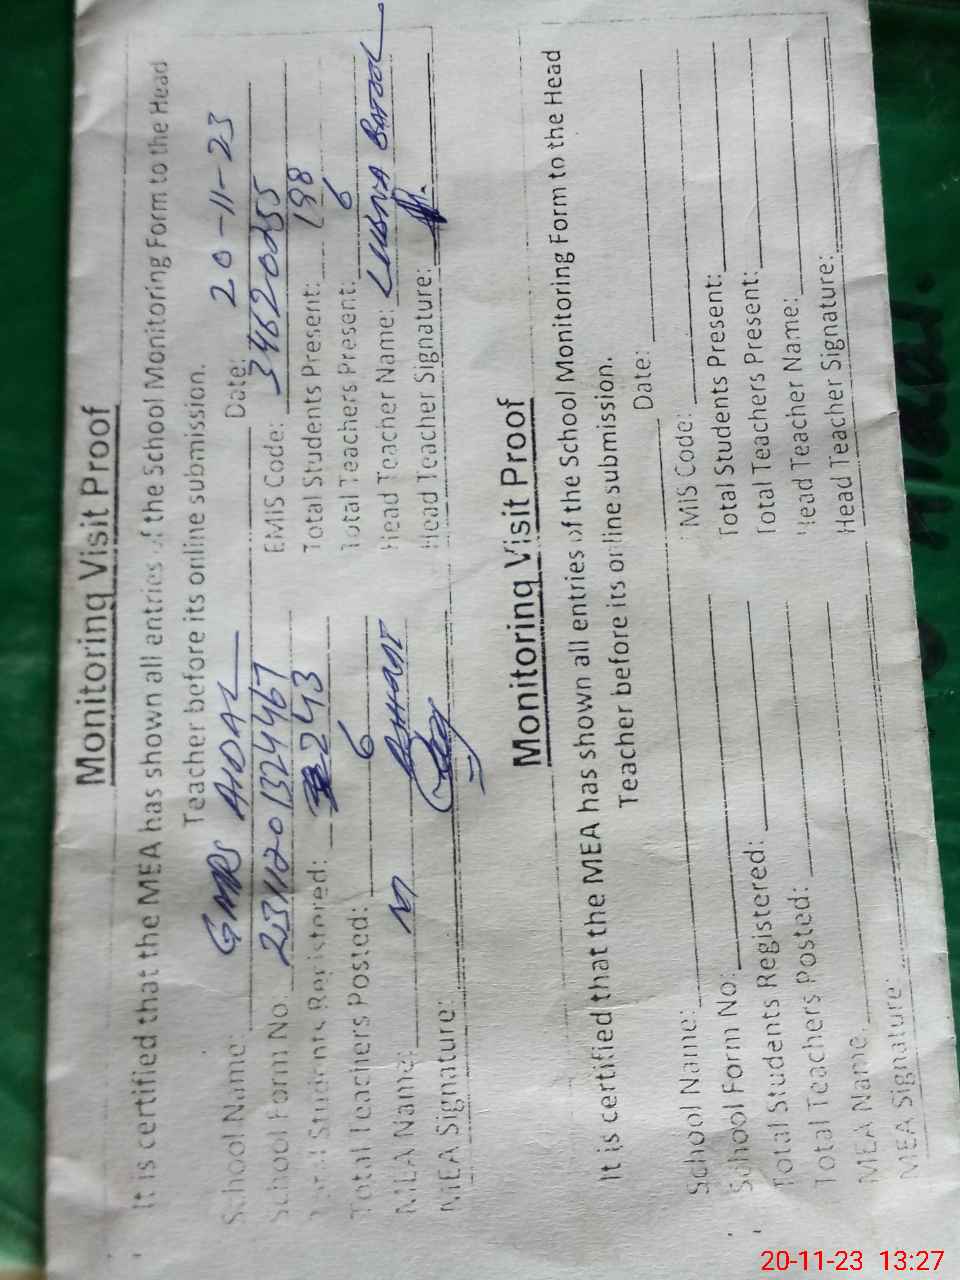 Monitoring Visit Proof
It is certified that the MEA has shown all entries of the School Monitoring Form to the Head
Teacher before its online submission.
School Name: GMPS Date: 20-11-23
School Form No. 2311201324467 EMIS Code:
Total Students Registered: 243 Total Students Present: 198
Total Teachers Posted: 6 Total Teachers Present: 6
MEA Name: M Head Teacher Name: LUBNA BATOOL
MEA Signature: Head Teacher Signature:
Monitoring Visit Proof
It is certified that the MEA has shown all entries of the School Monitoring Form to the Head
Teacher before its online submission.
School Name: Date:
School Form No: MIS Code:
Total Students Registered: Total Students Present:
Total Teachers Posted: Total Teachers Present:
MEA Name Head Teacher Name:
MEA Signature: Head Teacher Signature:
20-11-23 13:27